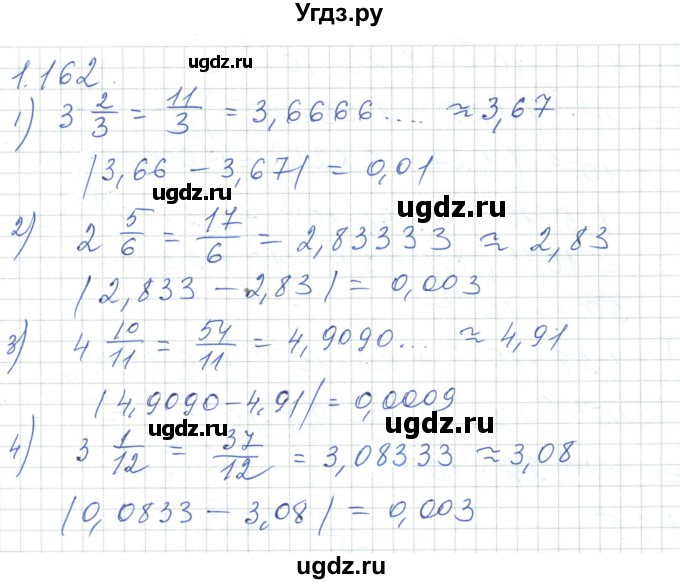 Угдз.ру
1.162.
1) 3 2/3 = 11/3 = 3,6666.... ≈ 3,67
|3,66 – 3,67| = 0,01
2) 2 5/6 = 17/6 = 2,83333 ≈ 2,83
|2,833 – 2,83| = 0,003
3) 4 10/11 = 54/11 = 4,9090... ≈ 4,91
|4,9090 – 4,91| = 0,0009
4) 3 1/12 = 37/12 = 3,08333 ≈ 3,08
|0,0833 – 3,08| = 0,003
ugdz.ru
ugdz.ru
ugdz.ru
ugdz.ru
ugdz.ru
ugdz.ru
ugdz.ru
ugdz.ru